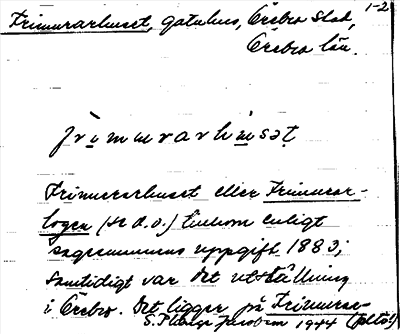 1-2
Frimurarhuset, gatuhus, Örebro stad,
Örebro län.
Frimurarhuset eller Frimurar-
logen (se d.o.) tillkom enligt
sagesmannens uppgift 1883;
samtidigt var det utställning
i Örebro. Det ligger på Frimurar-
S. 1944